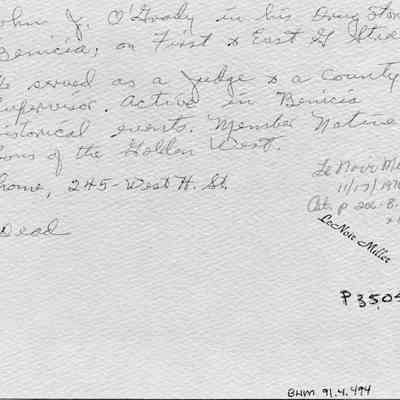 John J. O'Grady in his Drug Store
Benicia, on First & East G Stre
He served as a Judge & a County
Supervisor. Active in Benicia
historical events. Member Native
Sons of the Golden West.
home, 245-West H. St.
Dead
LeNoir Mi
11/17/197
Cat. p 206-B.
LeNoir Miller
P3504
BHM 91.4.494